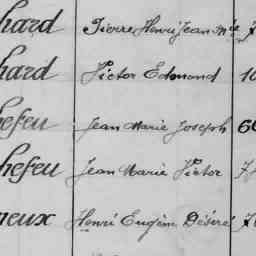 hard Pierre Henri Jean Mie 7
hard Victor Edmond 10
hefeu Jean Marie Joseph 60
hefeu Jean Marie Victor 74
neux Henri Eugène Désiré 70